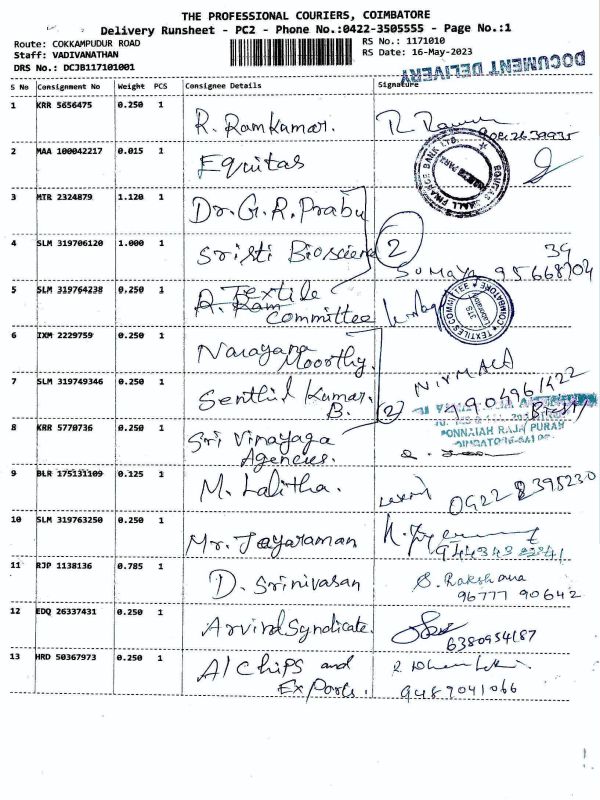 THE PROFESSIONAL COURIERS, COIMBATORE
Delivery Runsheet - PC2 - Phone No.:0422-3505555 - Page No.:1
Route: COKKAMPUDUR ROAD
RS No.: 1171010
Staff: VADIVANATHAN
RS Date: 16-May-2023
DRS No.: DCJB117101001
DOCUMENT DELIVERY
S No Consignment No Weight PCS Consignee Details Signature
1 KRR 5656475 0.250 1 R. Ramkumar.
2 MAA 100042217 0.015 1 Equitas
3 MTR 2324879 1.120 1 Dr. G. R. Prabu
4 SLM 319706120 1.000 1 Sristi Bioscience 2
39
SUMAYA 95668704
5 SLM 319764238 0.250 1 Textile
Committee
TEXTILES COMMITTEE
6 IXM 2229759 0.250 1 Narayana
Moorthy.
NIRMALA
7 SLM 319749346 0.250 1 Senthil Kumar.
B. 2
9904961422
PONNAIAH RAJA PURAM
8 KRR 5770736 0.250 1 Sri Vinayaga
Agencies.
9 BLR 175131109 0.125 1 M. Lalitha.
Laxmi 0422 2395230
10 SLM 319763250 0.250 1 Mr. Jayaraman
11 RJP 1138136 0.785 1 D. Srinivasan S. Rakshana
96777 90642
12 EDQ 26337431 0.250 1 Arvind Syndicate.
6380954187
13 HRD 50367973 0.250 1 A1 Chips and
Exports.
9487041066